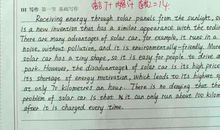 III 写作 第一节 基础写作
Receiving energy through solar panels from the sunlight,
is a new invention that has a similar appearance with the ordin
There are many advantages of solar car, for example, it runs in a
noise, without pollution, and it is environmentally-friendly. More
solar car has a tiny shape, so it is easy for people to drive a
park. However, the disadvantages of solar car is its high price
its shortage of energy motivation, which leads to its highest s
at only 71 kilometres an hour. There is no denying that the
problem of solar car is that it can only run about 120 kilome
after it is charged every time.